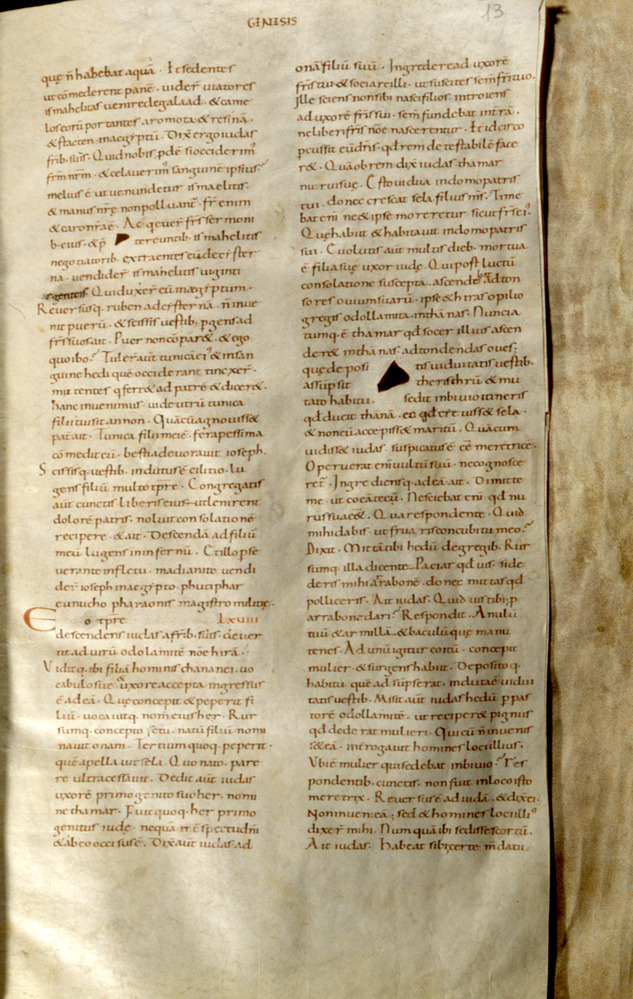 GENESIS
13
quę n̄ habebat aquā · Et sedentes
ut comederent panē · uider̄ uiatores
ismahelitas uenire de galaad · & came
los eorū portantes aromata & resinā ·
& stacten in aegiptū · Dix̄ ergo iudas
frīb; suis · Quid nobis pdē si occiderim'
frm̄ nrm̄ · & celauerim' sanguinē ipsius?
melius ē ut uenundetur ismaelitis ·
& manus nrę non polluant̄ · fr̄ enim
& caro nr̄a ē · Adqeuer̄ frs̄ sermoni
b; eius · & p̄ tereuntib; ismahelitis
negotiatorib; extraentes eū de cister
na · uendider̄ ismahelitis uiginti
argenteis Qui duxer̄ eū in aegiptum ·
Reuersusq; ruben ad cisternā n̄ inue
nit puerū · & scissis uestib; pgens ad
frs̄ suos ait · Puer non cōpar& · & ego
quo ibo? Tuler̄ aut̄ tunicā ei' & in san
guine hedi quē occiderant tinxer̄ ·
mittentes q ferr& ad patrē & dicer& ·
hanc inuenimus · uide utrū tunica
filii tui sit an non · Quā cū agnouiss&
pat̄ ait · Tunica filii mei ē · fera pessima
comedit eū · bestia deuorauit ioseph ·
Scissisq; uestib; indutus ē cilitio · lu
gens filiū multo tpre · Congregatis
aūt cunctis liberis eius ut lenirent
dolorē patris · noluit consolationē
recipere · & ait · Descendā ad filiū
meū lugens in infernū · Et illo pse
uerante in fletu · madianitę uendi
der̄ ioseph in aegipto · phutiphar
eunucho pharaonis magistro militię ·
Eo tpre LXVIII
descendens iudas a frīb; suis · diuer
tit ad uirū odolamitē nōe hirā ·
Viditq; ibi filiā hominis chananei · uo
cabulo sue · uxore accepta ingressus
ē ad eā · Quę concepit & peperit fi
liū · uocauitq; nom̄ eius her · Rur
sumq; concepto fętu · natū filiū nomi
nauit onam · Tertium quoq; peperit ·
quē apellauit sela · Quo nato · pare
re ultra cessauit · Dedit aūt iudas
uxorē primogenito suo her · nomi
ne thamar · Fuit quoq; her primo
genitus iudę · nequā in spectu dn̄i
& ab eo occisus ē · Dix̄ aūt iudas ad
onā filiū suū · Ingredere ad uxorē
frīs tui & sociare illi · ut suscites sem̄ fri tuo ·
Ille sciens non sibi nasci filios · introiens
ad uxorē frīs sui · sem̄ fundebat in trā ·
ne liberi frīs nōe nascerentur · Et idcirco
pcussit eū dn̄s · qd̄ rem detestabilē face
r& · Quā ob rem dix̄ iudas thamar
nurui suę · Esto uidua in domo patris
tui · donec crescat sela filius ms̄ · Time
bat eni ne & ipse moreretur sicut frs̄ ei' ·
Quę habiit & habitauit in domo patris
sui · Euolutis aūt multis dieb; mortua
ē filia suę uxor iudę · Qui post luctū
consolatione suscepta · ascende ad ton
sores ouium suarū · ipse & hiras opilio
gregis odollamita in thānas · Nuncia
tumq; ē thamar qd̄ socer illius ascen
der& in thānas ad tondendas oues ·
quę deposi tis uiduitatis uestib;
assūpsit theristrū & mu
tato habitu · sedit in biuio itineris
qd̄ ducit thānā · eo qd̄ creuiss& sela ·
& non eū accepiss& maritū · Quā cum
uidiss& iudas · suspicatus ē eē meretricē ·
Operuerat eni uultū suū · ne cognosce
ret̄ · Ingrediensq; ad eā ait · Dimitte
me ut coeā tecū · Nesciebat eni qd̄ nu
rus sua ess& · Qua respondente · Quid
mihi dabis ut fruaris concubitu meo?
Dixit · Mittā tibi hedū de gregib; Rur
sumq; illa dicente · Patiar qd̄ uis · si de
deris mihi arabonē · donec mittas qd̄
polliceris · Ait iudas · Quid uis tibi p
arrabone dari? Respondit · Anulū
tuū & armillā · & baculū quę manu
tenes · Ad unū igitur coitū · concepit
mulier · & surgens habiit · Depositoq;
habitu quē adsūpserat · induta ē uidui
tatis uestib; Misit aūt iudas hedū p pas
torē odollamitē · ut reciper& pignus
qd̄ dederat mulieri · Qui cū n̄ inuenis
s& eā · introgauit homines loci illius ·
Vbi ē mulier qui sedebat in biuio? Res
pondentib; cunctis · non fuit in loco isto
meretrix · Reuersus ē ad iudā · & dix̄ ei ·
Non inueni eā · sed & homines loci illi'
dixer̄ mihi · Numquā ibi sedisse scortū ·
Ait iudas · Habeat sibi · certe m̄datii